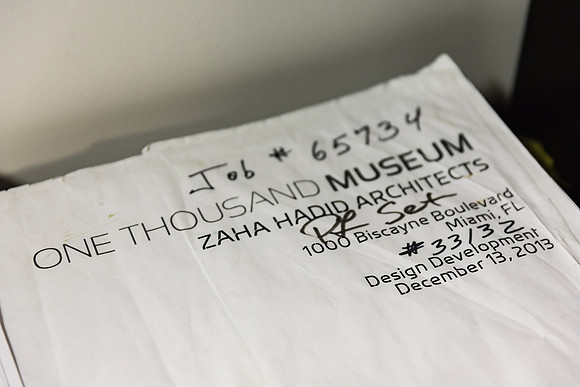 Job # 65734
ONE THOUSAND MUSEUM
ZAHA HADID ARCHITECTS
Set
1000 Biscayne Boulevard
Miami, FL
# 33/32
Design Development
December 13, 2013